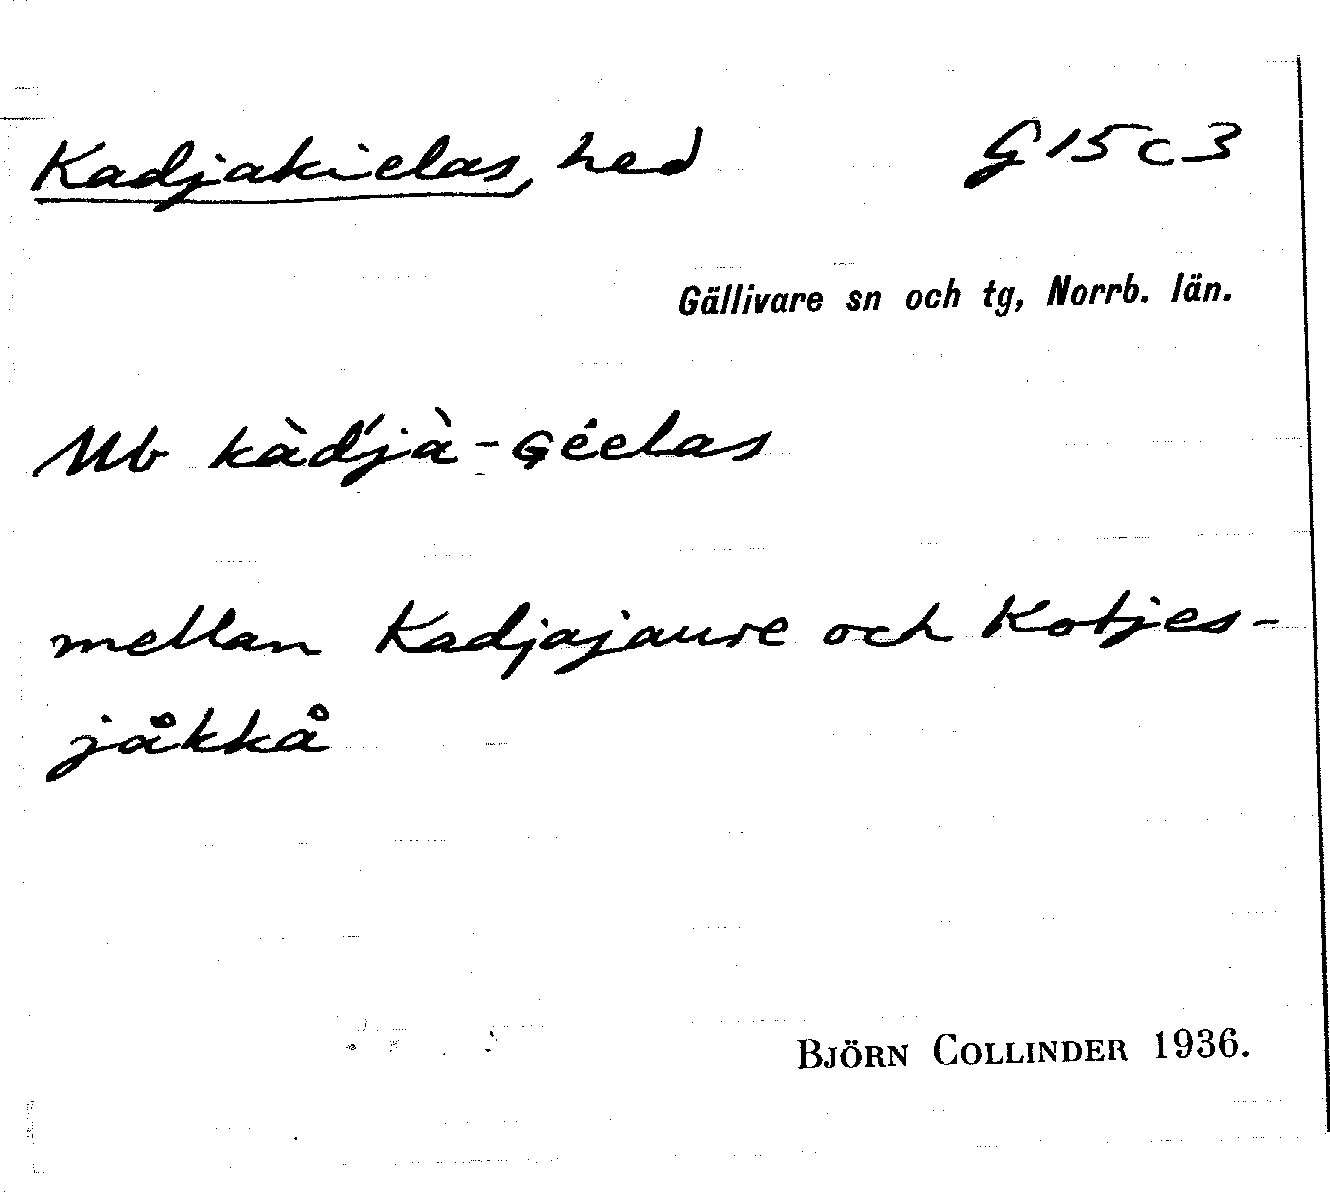 Kadjakielas, hed G 15 c 3
Gällivare sn och tg, Norrb. län.
Mb kàd́jà-Ģéelas
mellan Kadjajaure och Kotjes-
jåkkå
BJÖRN COLLINDER 1936.